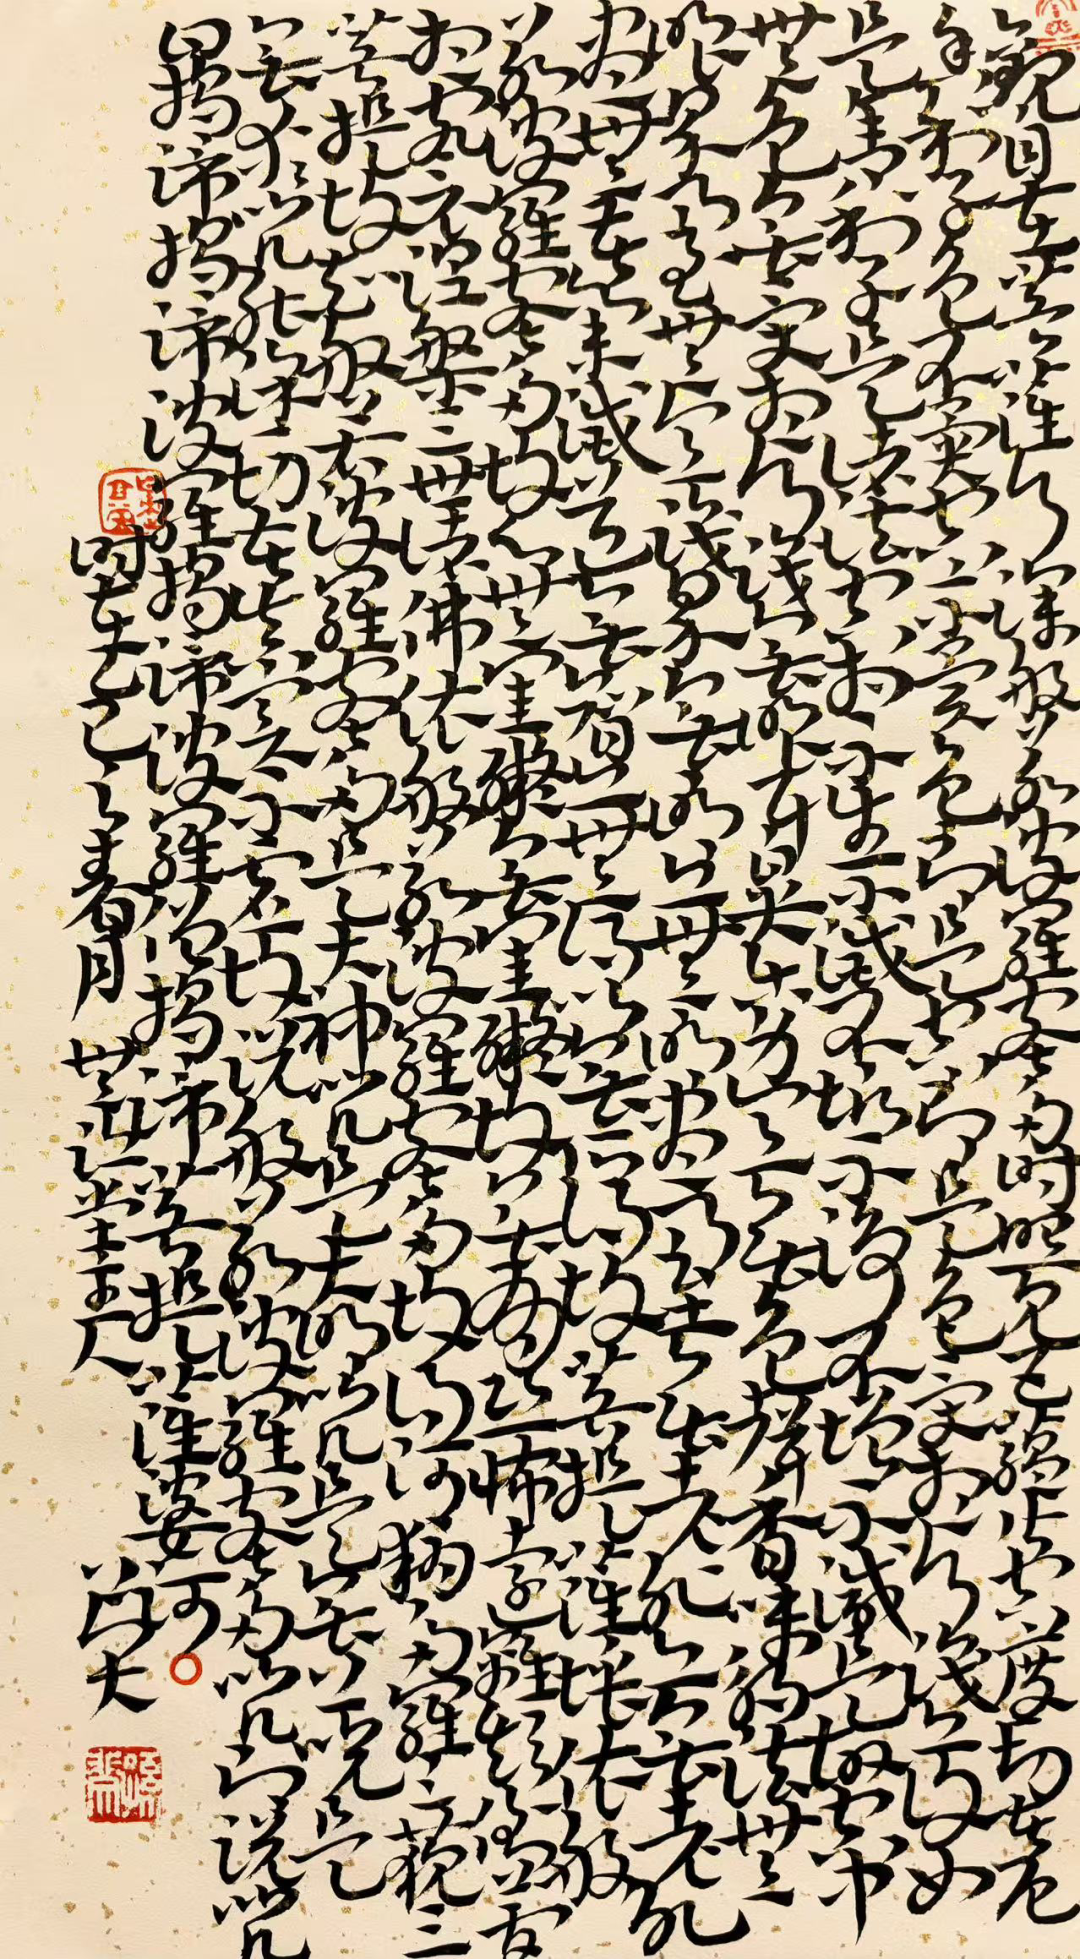 觀自在菩薩行深般若波羅蜜多時照見五蘊皆空度一切苦厄
舍利子色不異空空不異色色即是空空即是色受想行識亦復如
是舍利子是諸法空相不生不滅不垢不淨不增不減是故空中
無色無受想行識無眼耳鼻舌身意無色聲香味觸法無
眼界乃至無意識界無無明亦無無明盡乃至無老死亦無老死
盡無苦集滅道無智亦無得以無所得故菩提薩埵依般
若波羅蜜多故心無罣礙無罣礙故無有恐怖遠離顛倒夢
想究竟涅槃三世諸佛依般若波羅蜜多故得阿耨多羅三藐三
菩提故知般若波羅蜜多咒是大神咒是大明咒是無上咒是
無等等咒能除一切苦真實不虛故說般若波羅蜜多咒即說咒
曰揭諦揭諦波羅揭諦波羅僧揭諦菩提薩婆訶
時在乙巳之春月 堂主人